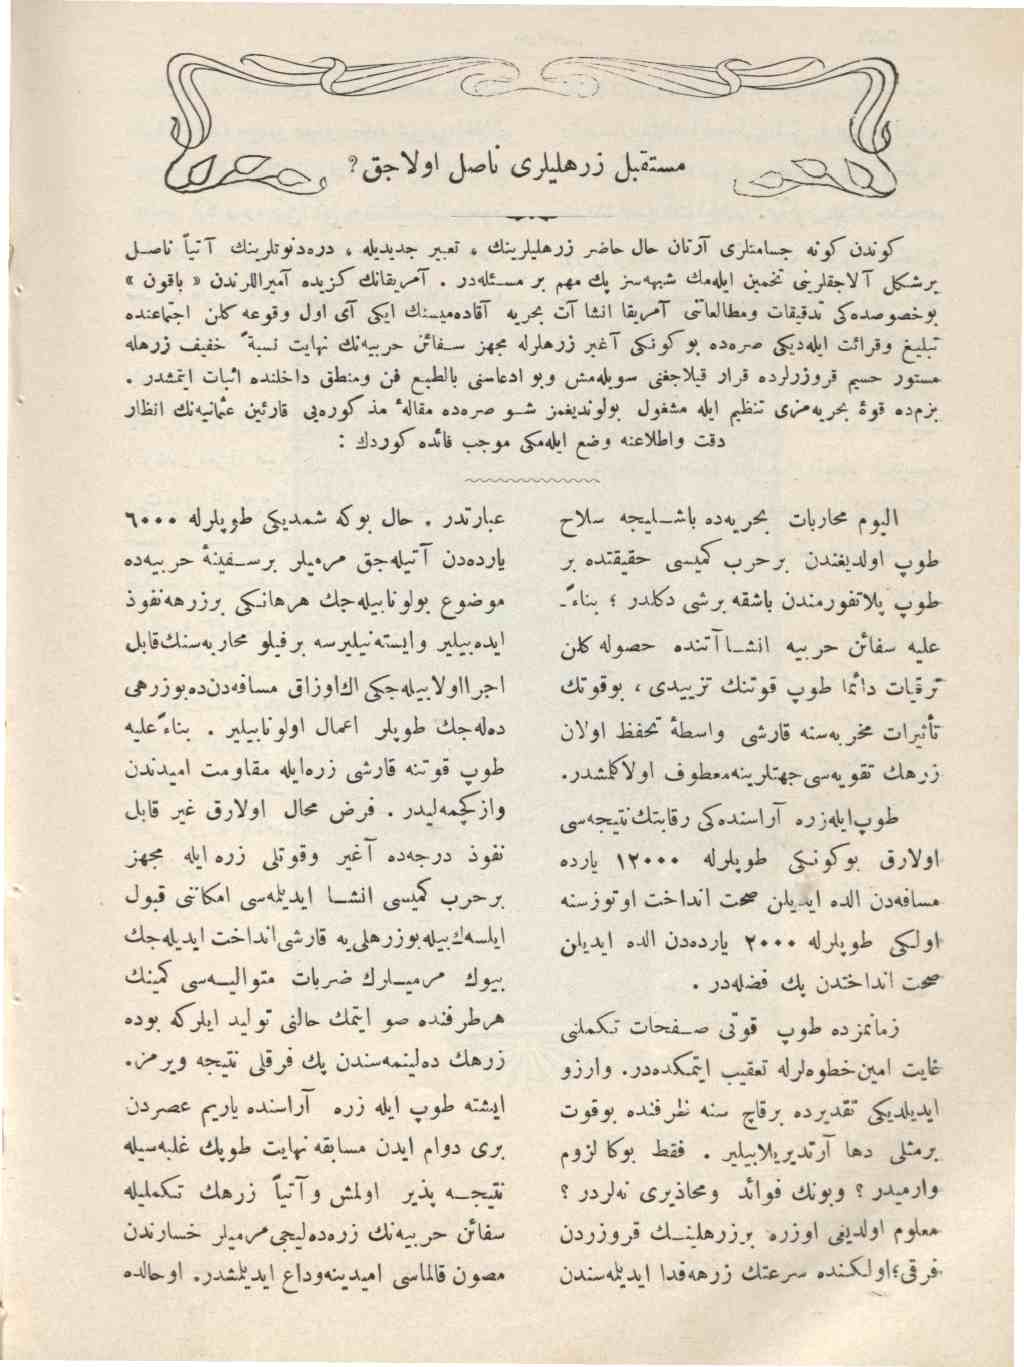 مستقبل زرهلیلری ناصل اولاجق؟
کوندن کونه جسامتلری آرتان حال حاضر زرهلیلرینك ، تعبیر جدیدیله ، دره‌دنوتلرینك آتیاً ناصـل
برشکل آلاجقلرینی تخمین ایله‌مك شبهه‌سز پك مهم بر مسـئله‌در . آمریقانك کزیده آمیراللرندن « باقون »
بوخصوصده‌کی تدقیقات ومطالعاتنی آمریقا انشا آت بحریه آقاده‌میسنك ایکی آی اول وقوعه کلن اجتماعنده
تبلیغ وقرائت ایله‌دیکی صره‌ده بو کونکی آغیر زرهلرله مجهز سـفائن حربیه‌نك نهایت نسبةً خفیف زرهله
مستور جسیم قروزرلرده قرار قیلاجغنی سویله‌مش وبو ادعاسنی بالطبع فن ومنطق داخلنده اثبات ایتمشدر .
بزم‌ده قوۀ بحریه‌مزی تنظیم ایله مشغول بولوندیغمز شـو صره‌ده مقالۀ مذکوره‌یی قارئین عثمانیه‌نك انظار
دقت واطلاعنه وضع ایله‌مکی موجب فائده کوردك :
الیوم محاربات بحریه‌ده باشـلیجه سلاح
طوپ اولدیغندن برحرب کمیسی حقیقتده بر
طوپ پلاتفورمندن باشقه برشی دکلدر ؛ بناءً ـ
علیه سفائن حربیه انشـاآتنده حصوله کلن
ترقیات دائما طوپ قوتنك تزییدی ، بوقوتك
تأثیرات مخربه‌سنه قارشی واسطۀ تحفظ اولان
زرهك تقویه‌سی جهتلرینه‌معطوف اولاکلمشدر.
طوپ‌ایله‌زره آراسنده‌کی رقابتك‌نتیجه‌سی
اولارق بوکونـکی طوپلرله ١٢٠٠٠ یارده
مسافه‌دن الده ایدیلن صحت انداخت اوتوزسنه
اولکی طوپلرله ٢٠٠٠ یارده‌دن الده ایدیلن
صحت انداختدن پك فضله‌در .
زمانمزده طوپ قوتی صـفحات تـکملنی
غایت امین‌خطوه‌لرله تعقیب ایتمکده‌در. وارزو
ایدیلدیکی تقدیرده برقاچ سنه ظرفنده بوقوت
برمثلی دها آرتدیریلابیلیر . فقط بوکا لزوم
وارمیدر ؟ وبونك فوائد ومحاذیری نه‌لردر ؟
معلوم اولدیغی اوزره برزرهلینـك قروزردن
فرقی؛اولکـنده سرعتك زرهه‌فدا ایدیلمه‌سندن
عبارتدر . حال بوکه شمدیکی طوپلرله ٦٠٠٠
یارده‌دن آتیله‌جق مرمیلر برسـفینۀ حربیه‌ده
موضوع بولونابیله‌جك هرهانـکی برزرهه‌نفوذ
ایده‌بیلیر وایسته‌نیلیرسه برفیلو محاربه‌سنك‌قابل
اجرااولابیله‌جکی اك‌اوزاق مسافه‌دن‌ده‌بوزرهی
ده‌له‌جك طوپلر اعمال اولونابیلیر . بناءً‌علیه
طوپ قوتنه قارشی زره‌ایله مقاومت امیدندن
وازکچمه‌لیدر . فرض محال اولارق غیر قابل
نفوذ درجه‌ده آغیر وقوتلی زره ایله مجهز
برحرب کمیسی انشـا ایدیلمه‌سی امکاننی قبول
ایلسه‌ك‌بیله‌بوزرهلی‌یه قارشی‌انداخت ایدیله‌جك
بیوك مرمیـلرك ضربات متوالیـه‌سی کمینك
هرطرفنده صو ایتمك حالنی تولید ایلرکه بوده
زرهك ده‌لینمه‌سندن پك فرقلی نتیجه ویرمز.
ایشته طوپ ایله زره آراسنده یاریم عصردن
بری دوام ایدن مسابقه نهایت طوپك غلبه‌سیله
نتیجـه پذیر اولمش وآتیاً زرهك تکملیله
سفائن حربیه‌نك زره‌ده‌لیجی‌مرمیلر خسارندن
مصون قالماسی امیدینه‌وداع ایدیلمشدر. اوحالده